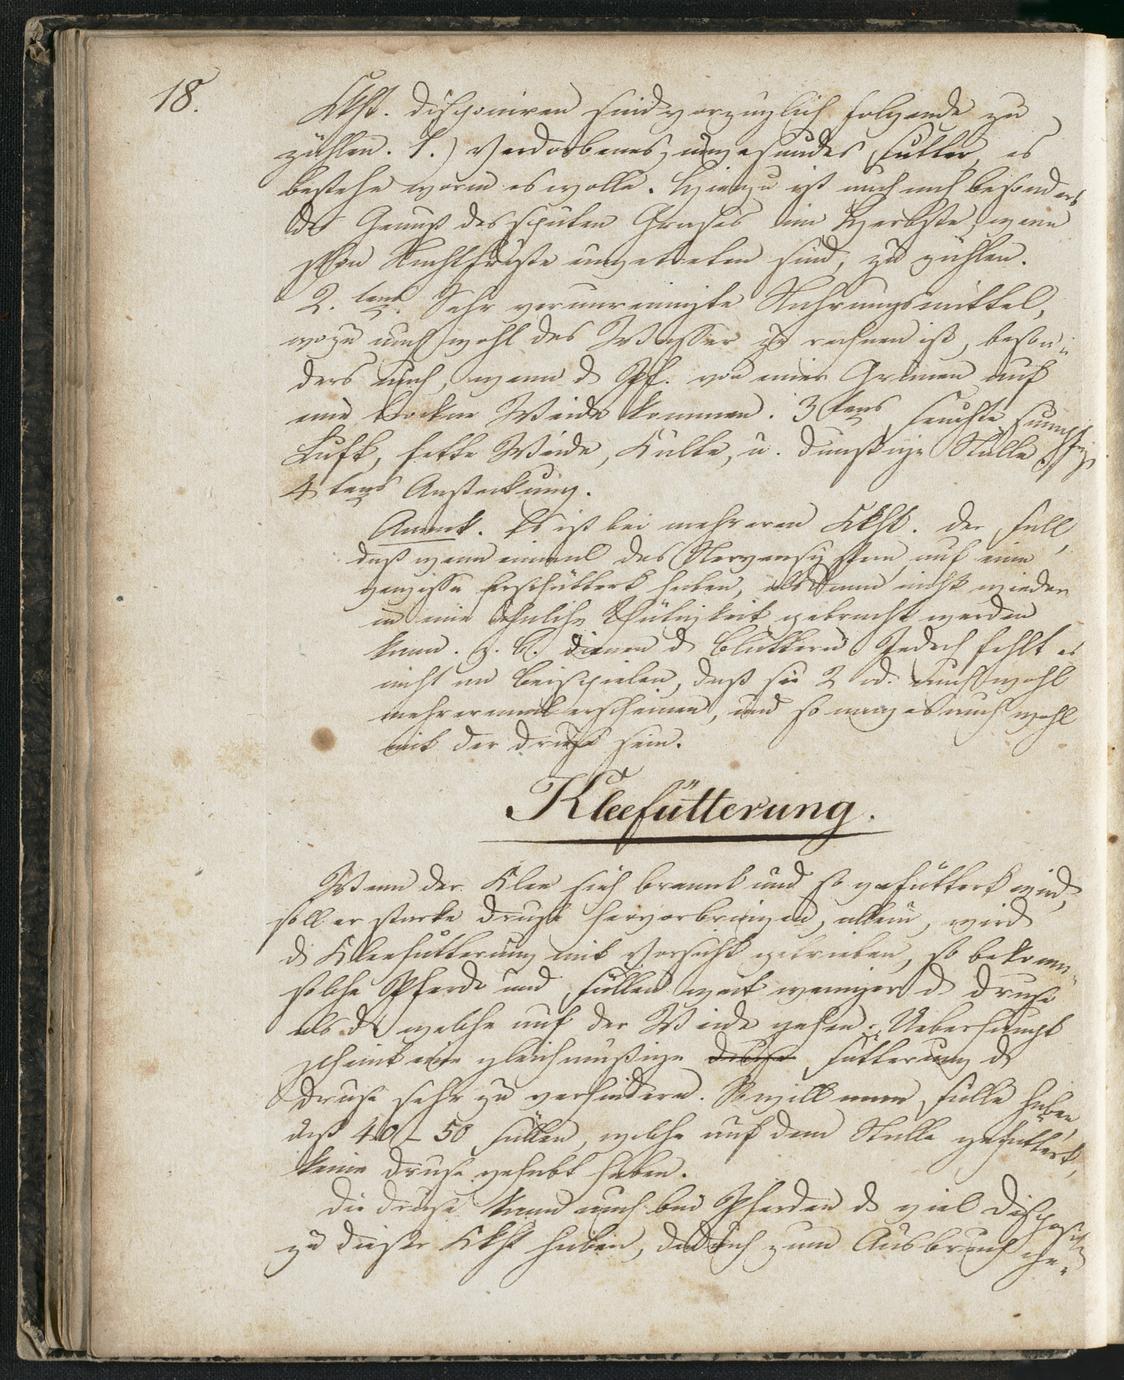 18.
Kkht. disponiren sind vorzüglich folgende zu
zählen. 1.) Verdorbenes, ungesundes Futter, es
bestehe worin es wolle. Hierzu ist auch noch besonders
der Genuß des späten Grases im Herbste, wenn
schon Nachtfröste eingetreten sind, zu zählen.
2. tens. Sehr verunreinigte Nahrungsmittel,
wozu auch wohl das Wasser zu rechnen ist, beson-
ders auch, wenn d Pf. von einer Grünen auf
eine trockne Weide kommen. 3 tens feuchte sumpfige
Luft, fette Weide, Kälte, u. dunstige Ställe
4 tens Ansteckung.
Anmk. Es ist bei mehreren Kkht. der Fall,
daß wenn einmal das Nervensystem auf eine
gewisse erschüttert haben, alsdann nicht wieder
in eine ähnliche Thätigkeit gebracht werden
kann. z. B. dienen d Blattern Jedoch fehlt es
nicht an Beispielen, daß sie 2 od. auch wohl
mehreremal erscheinen, und so mag es auch wohl
mit der Druse sein.
Kleefütterung.
Wenn der Klee sich brennt und so gefüttert wird,
soll er starke Druse hervorbringen, allein, wird
d Kleefütterung mit Vorsicht getrieben, so bekomm
solche Pferde und Füllen weit weniger d Druse
als d welche auf der Weide gehen. Ueberhaupt
scheint eine gleichmäßige Druse Fütterung d
Druse sehr zu verhindern. So will man Fälle haben,
daß 40 - 50 Füllen, welche auf dem Stalle gefüttert,
keine Druse gehabt haben.
Die Druse kann auch bei Pferden d viel Disposit
zu dieser Kkht haben, dadurch zum Ausbruch ge-